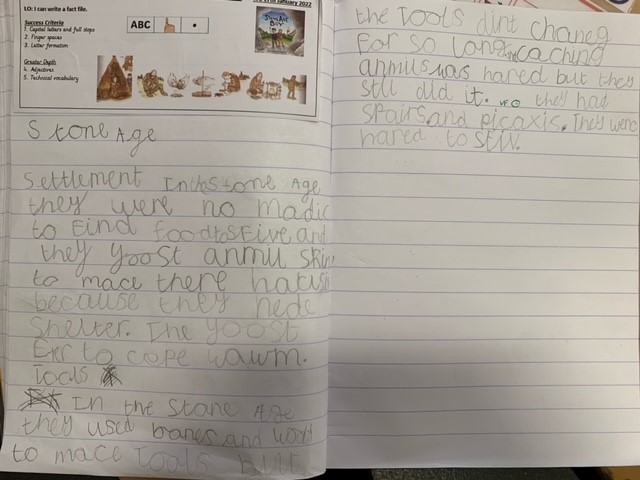 LO: I can write a fact file.
Success Criteria
1. Capital letters and full stops
2. Finger spaces
3. Letter formation
Greater Depth
4. Adjectives
5. Technical vocabulary
ABC
January 2022
Stone Age
Boy
Stone Age
Settlement In the stone Age
they were no madic
to Find food to sFive and
they yoost anmul skin
to mace there
because they nede
Shelter. The yoost
to cope wawm.
Tools
In the Stone Age
they used bones and
to mace Tools but
the Tools dint chaneg
For so long. caching
anmils was hared but they
still did it. they had
spairs and picaxis. They were
hared to